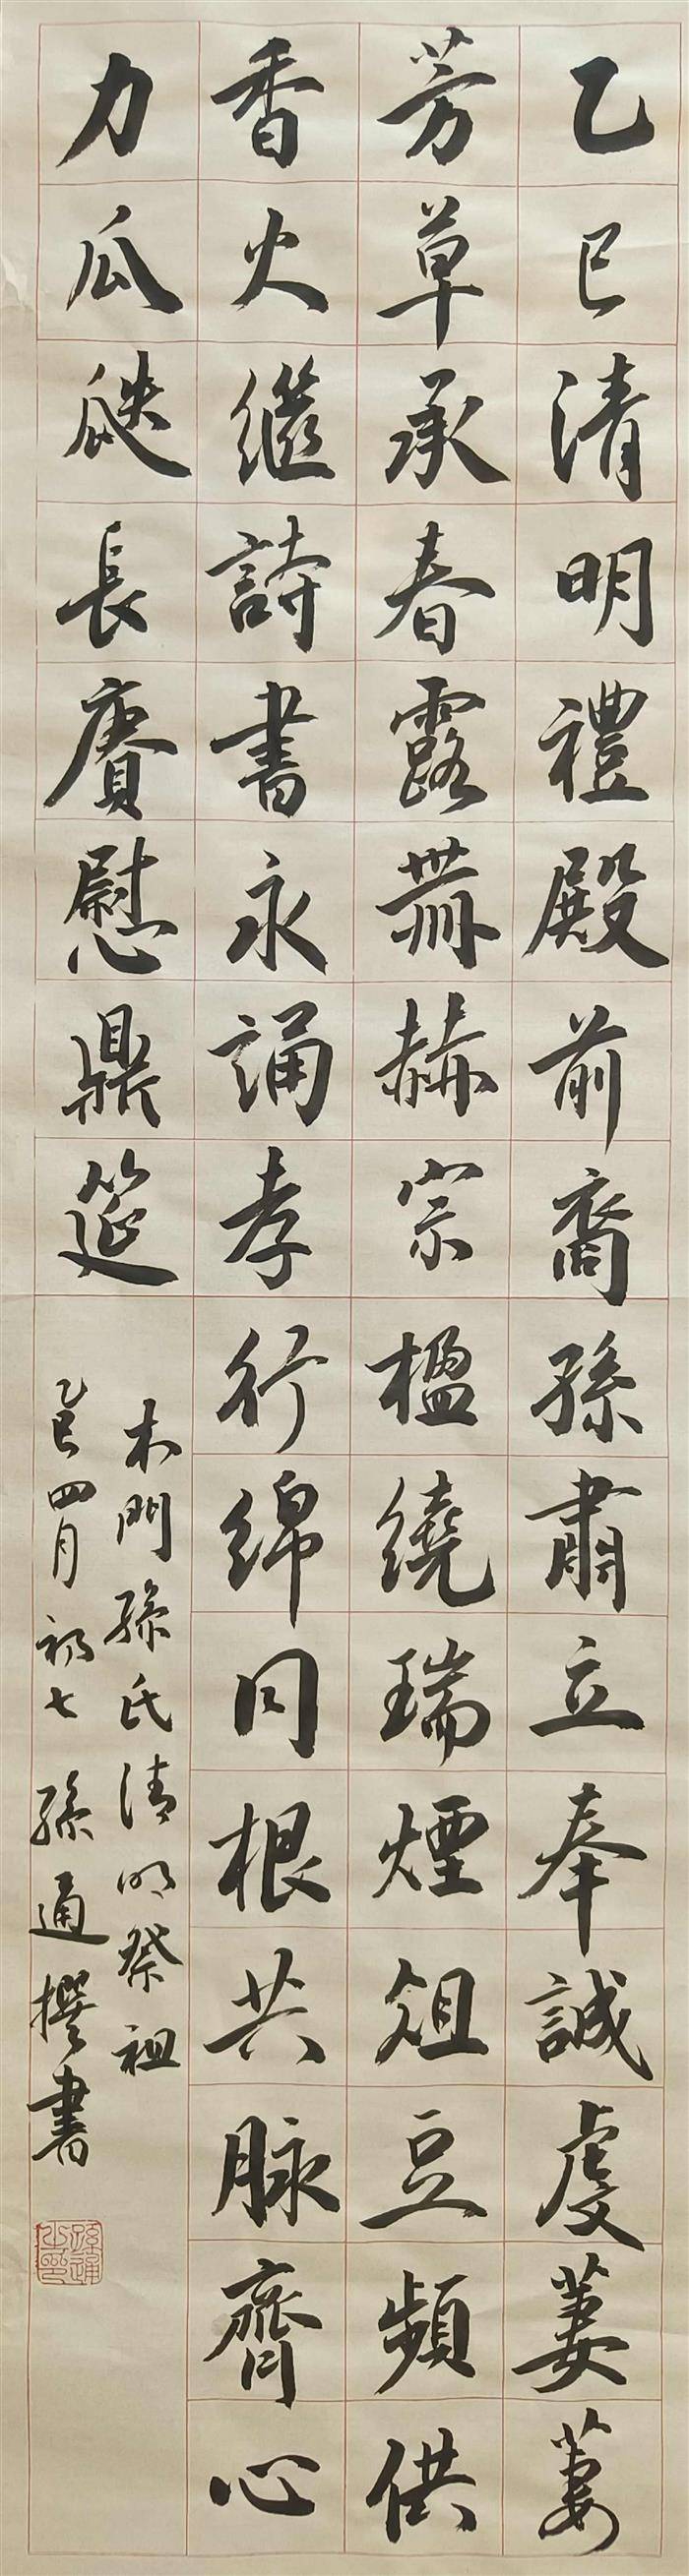 乙巳清明禮殿前裔孫肅立奉誠虔萋萋
芳草承春露赫赫宗楹繞瑞煙俎豆頻供
香火繼詩書永誦孝行綿同根共脉齊心
力瓜瓞長賡慰鼎筵
木門孫氏清明祭祖
乙巳四月初七孫通撰書
孫通之印